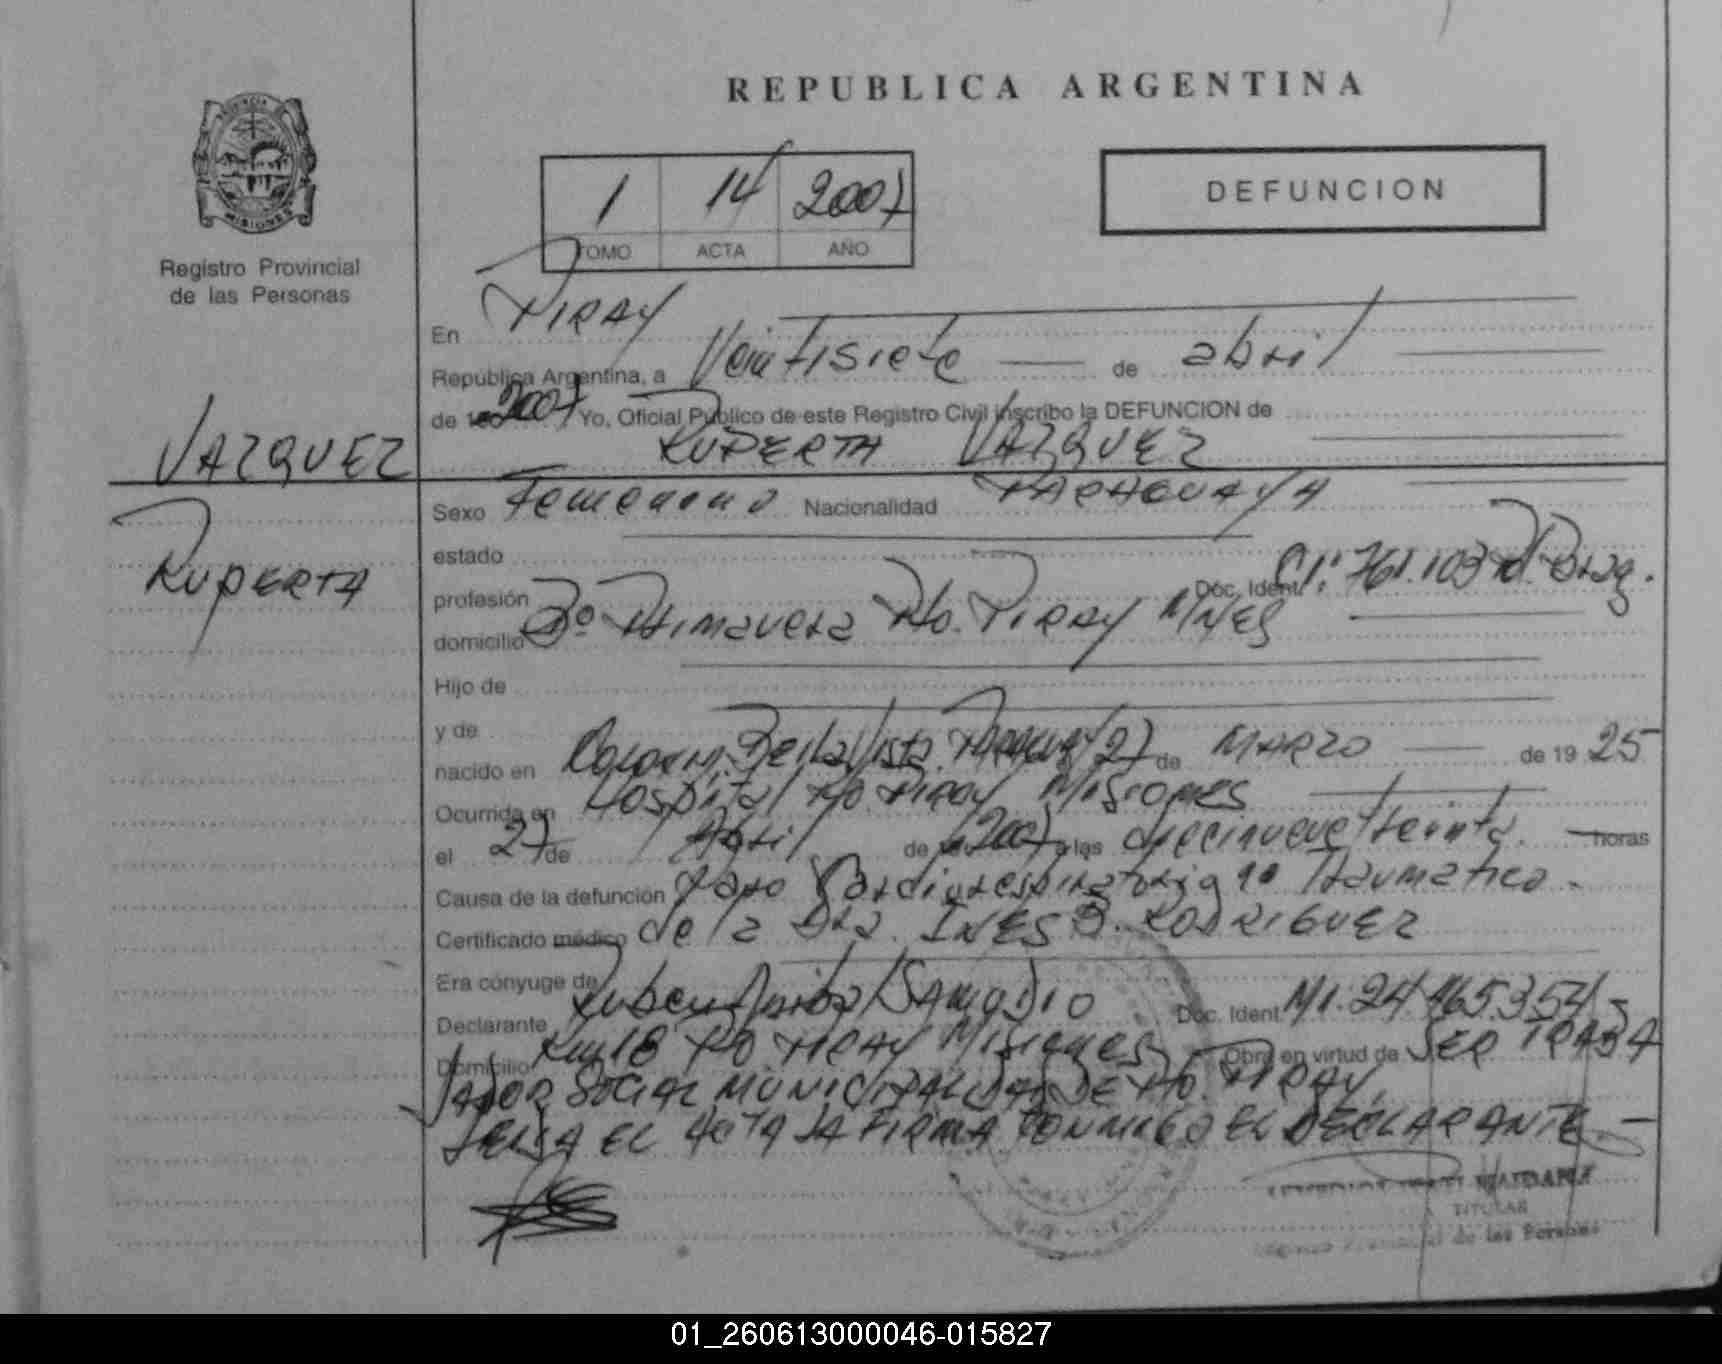 REPUBLICA ARGENTINA
MISIONES
Registro Provincial
de las Personas
1 14 2007
TOMO ACTA AÑO
DEFUNCION
En PIRAY
República Argentina, a Veintisiete de abril
de 2007 Yo, Oficial Público de este Registro Civil inscribo la DEFUNCION de
RUPERTA VAZQUEZ
VAZQUEZ
RUPERTA
Sexo Femenino Nacionalidad PARAGUAYA
estado
profesión Doc. Ident. CI: 761.103
domicilio Bº Primavera Pto. PIRAY MNES
Hijo de
y de
nacido en Bella Vista Paraguay 27 de MARZO de 19 25
Ocurrida en Hospital Pto PIRAY MISIONES
el 27 de Abril de 2007 a las diecinueve treinta horas
Causa de la defunción paro Cardiorespiratorio no Traumatico.
Certificado médico de la Dra. INES B. RODRIGUEZ
Era cónyuge de
Declarante Ruben Anibal SAMUDIO Doc. Ident. MI. 24.465.354
Domicilio Km 18 Pto. PIRAY Misiones Obra en virtud de SER TRABA
JADOR SOCIAL MUNICIPALIDAD DE Pto. PIRAY.
LEIDA EL ACTA LA FIRMA CONMIGO EL DECLARANTE.
TITULAR
de las Personas
01_260613000046-015827